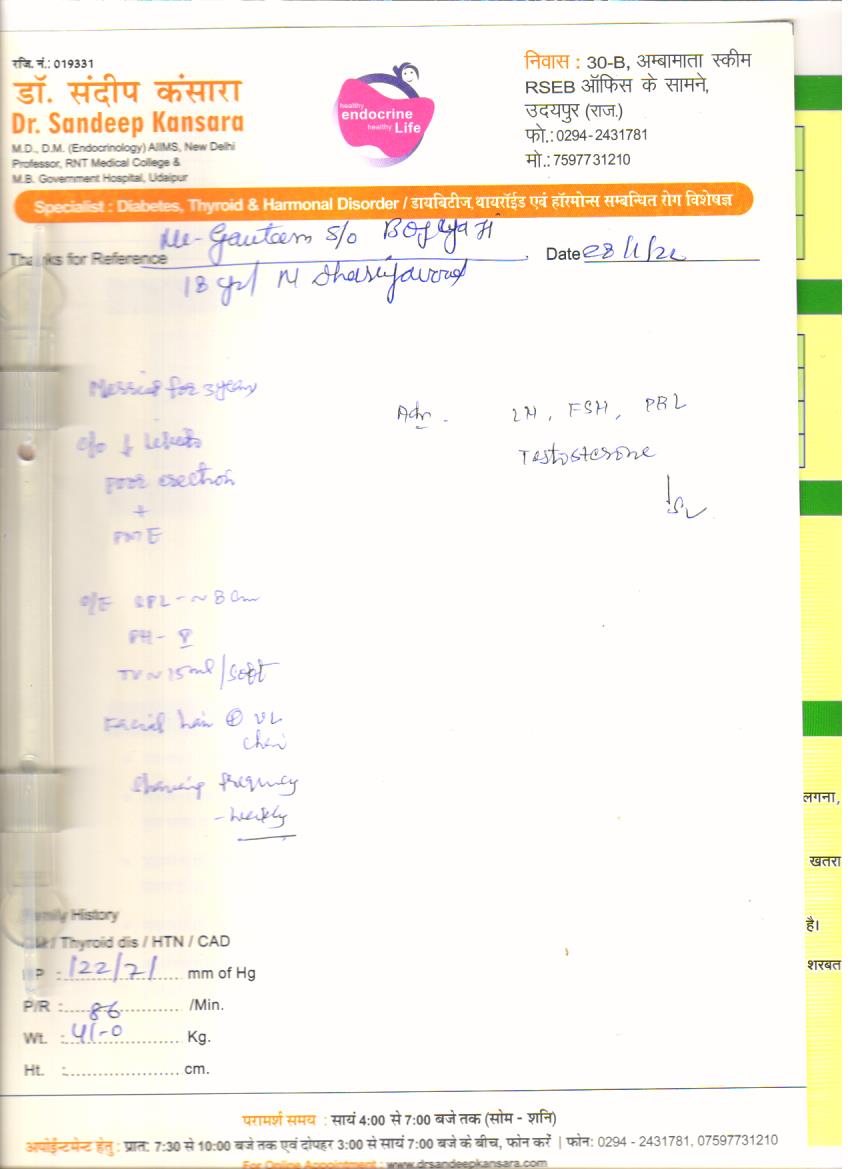 रजि. नं.: 019331
डॉ. संदीप कंसारा
Dr. Sandeep Kansara
M.D., D.M. (Endocrinology) AIIMS, New Delhi
Professor, RNT Medical College &
M.B. Government Hospital, Udaipur
healthy
endocrine
healthy Life
निवास : 30-B, अम्बामाता स्कीम
RSEB ऑफिस के सामने,
उदयपुर (राज.)
फो.: 0294-2431781
मो.: 7597731210
Specialist : Diabetes, Thyroid & Harmonal Disorder / डायबिटीज, थायरॉईड एवं हॉरमोन्स सम्बन्धित रोग विशेषज्ञ
Thanks for Reference Mr- Gautam S/o
Date 28/1/22
18 yr/ M
Married for 3 years
c/o ↓
poor erection
+
PME
O/E SPL - ~ 8 cm
PH - V
TV ~ 15 ml / soft
Facial hair ⊕ UL
chin
Shaving frequency
- weekly
Adv. LH, FSH, PRL
Testosterone
Family History
DM / Thyroid dis / HTN / CAD
BP : 122/71 mm of Hg
P/R : 86 /Min.
Wt. : 41-0 Kg.
Ht. : cm.
लगना,
खतरा
है।
शरबत
परामर्श समय : सायं 4:00 से 7:00 बजे तक (सोम - शनि)
अपोईन्टमेन्ट हेतु : प्रातः 7:30 से 10:00 बजे तक एवं दोपहर 3:00 से सायं 7:00 बजे के बीच, फोन करें | फोन: 0294 - 2431781, 07597731210
For Online Appointment : www.drsandeepkansara.com